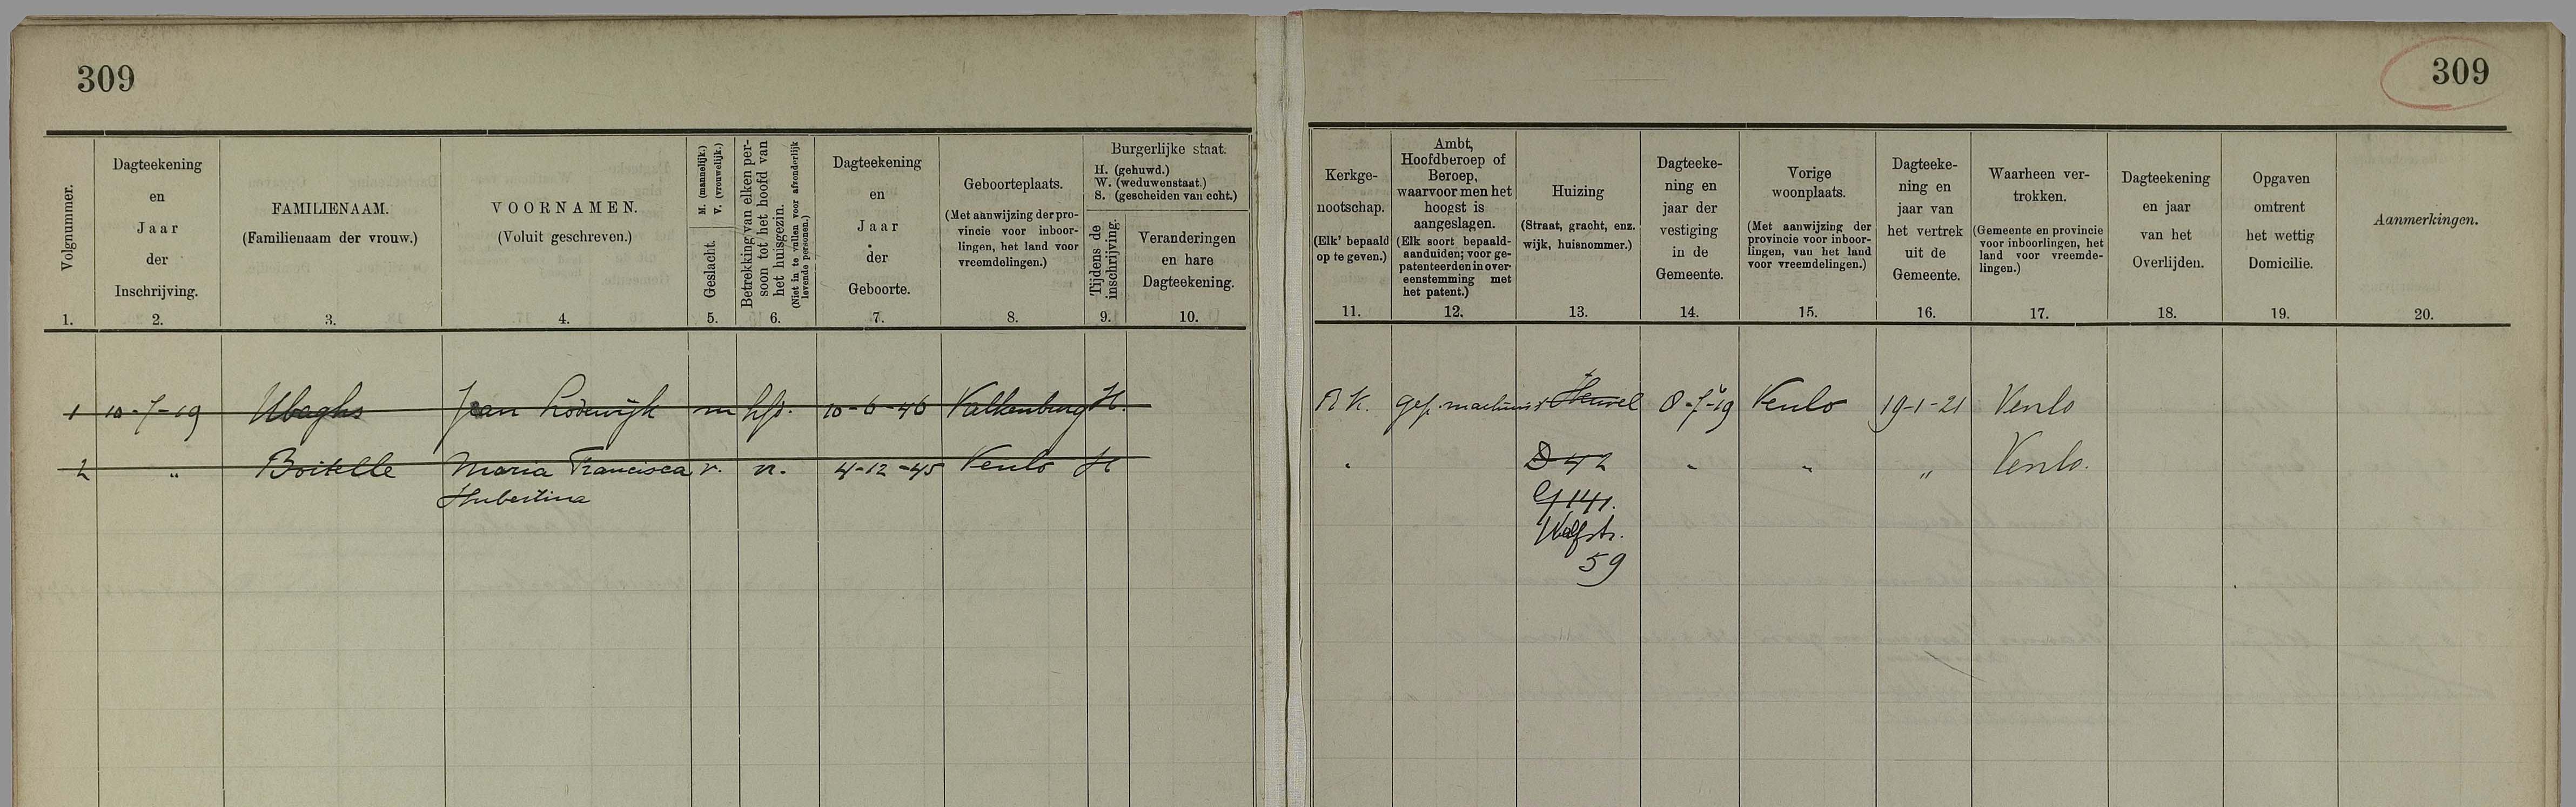 309
309
Volgnummer.
1.
Dagteekening
en
Jaar
der
Inschrijving.
2.
FAMILIENAAM.
(Familienaam der vrouw.)
3.
VOORNAMEN.
(Voluit geschreven.)
4.
M. (mannelijk.)
V. (vrouwelijk.)
Geslacht.
5.
Betrekking van elken per-
soon tot het hoofd van
het huisgezin.
(Niet in te vullen voor afzonderlijk
levende personen.)
6.
Dagteekening
en
Jaar
der
Geboorte.
7.
Geboorteplaats.
(Met aanwijzing der pro-
vincie voor inboor-
lingen, het land voor
vreemdelingen.)
8.
Burgerlijke staat.
H. (gehuwd.)
W. (weduwenstaat.)
S. (gescheiden van echt.)
Tijdens de
inschrijving.
9.
Veranderingen
en hare
Dagteekening.
10.
Kerkge-
nootschap.
(Elk' bepaald
op te geven.)
11.
Ambt,
Hoofdberoep of
Beroep,
waarvoor men het
hoogst is
aangeslagen.
(Elk soort bepaald-
aanduiden; voor ge-
patenteerden in over-
eenstemming met
het patent.)
12.
Huizing
(Straat, gracht, enz.
wijk, huisnommer.)
13.
Dagteeke-
ning en
jaar der
vestiging
in de
Gemeente.
14.
Vorige
woonplaats.
(Met aanwijzing der
provincie voor inboor-
lingen, van het land
voor vreemdelingen.)
15.
Dagteeke-
ning en
jaar van
het vertrek
uit de
Gemeente.
16.
Waarheen ver-
trokken.
(Gemeente en provincie
voor inboorlingen, het
land voor vreemde-
lingen.)
17.
Dagteekening
en jaar
van het
Overlijden.
18.
Opgaven
omtrent
het wettig
Domicilie.
19.
Aanmerkingen.
20.
1 10-7-19 Ubaghs Jean Lodewijk m hfd. 10-6-46 Valkenburg H. R K. gep. machinist Heuvel 8-7-19 Venlo 19-1-21 Venlo
2 " Boitelle Maria Francisca v. v. 4-12-45 Venlo H " D 42 " " " Venlo.
Hubertina G 141.
Wolfstr.
59